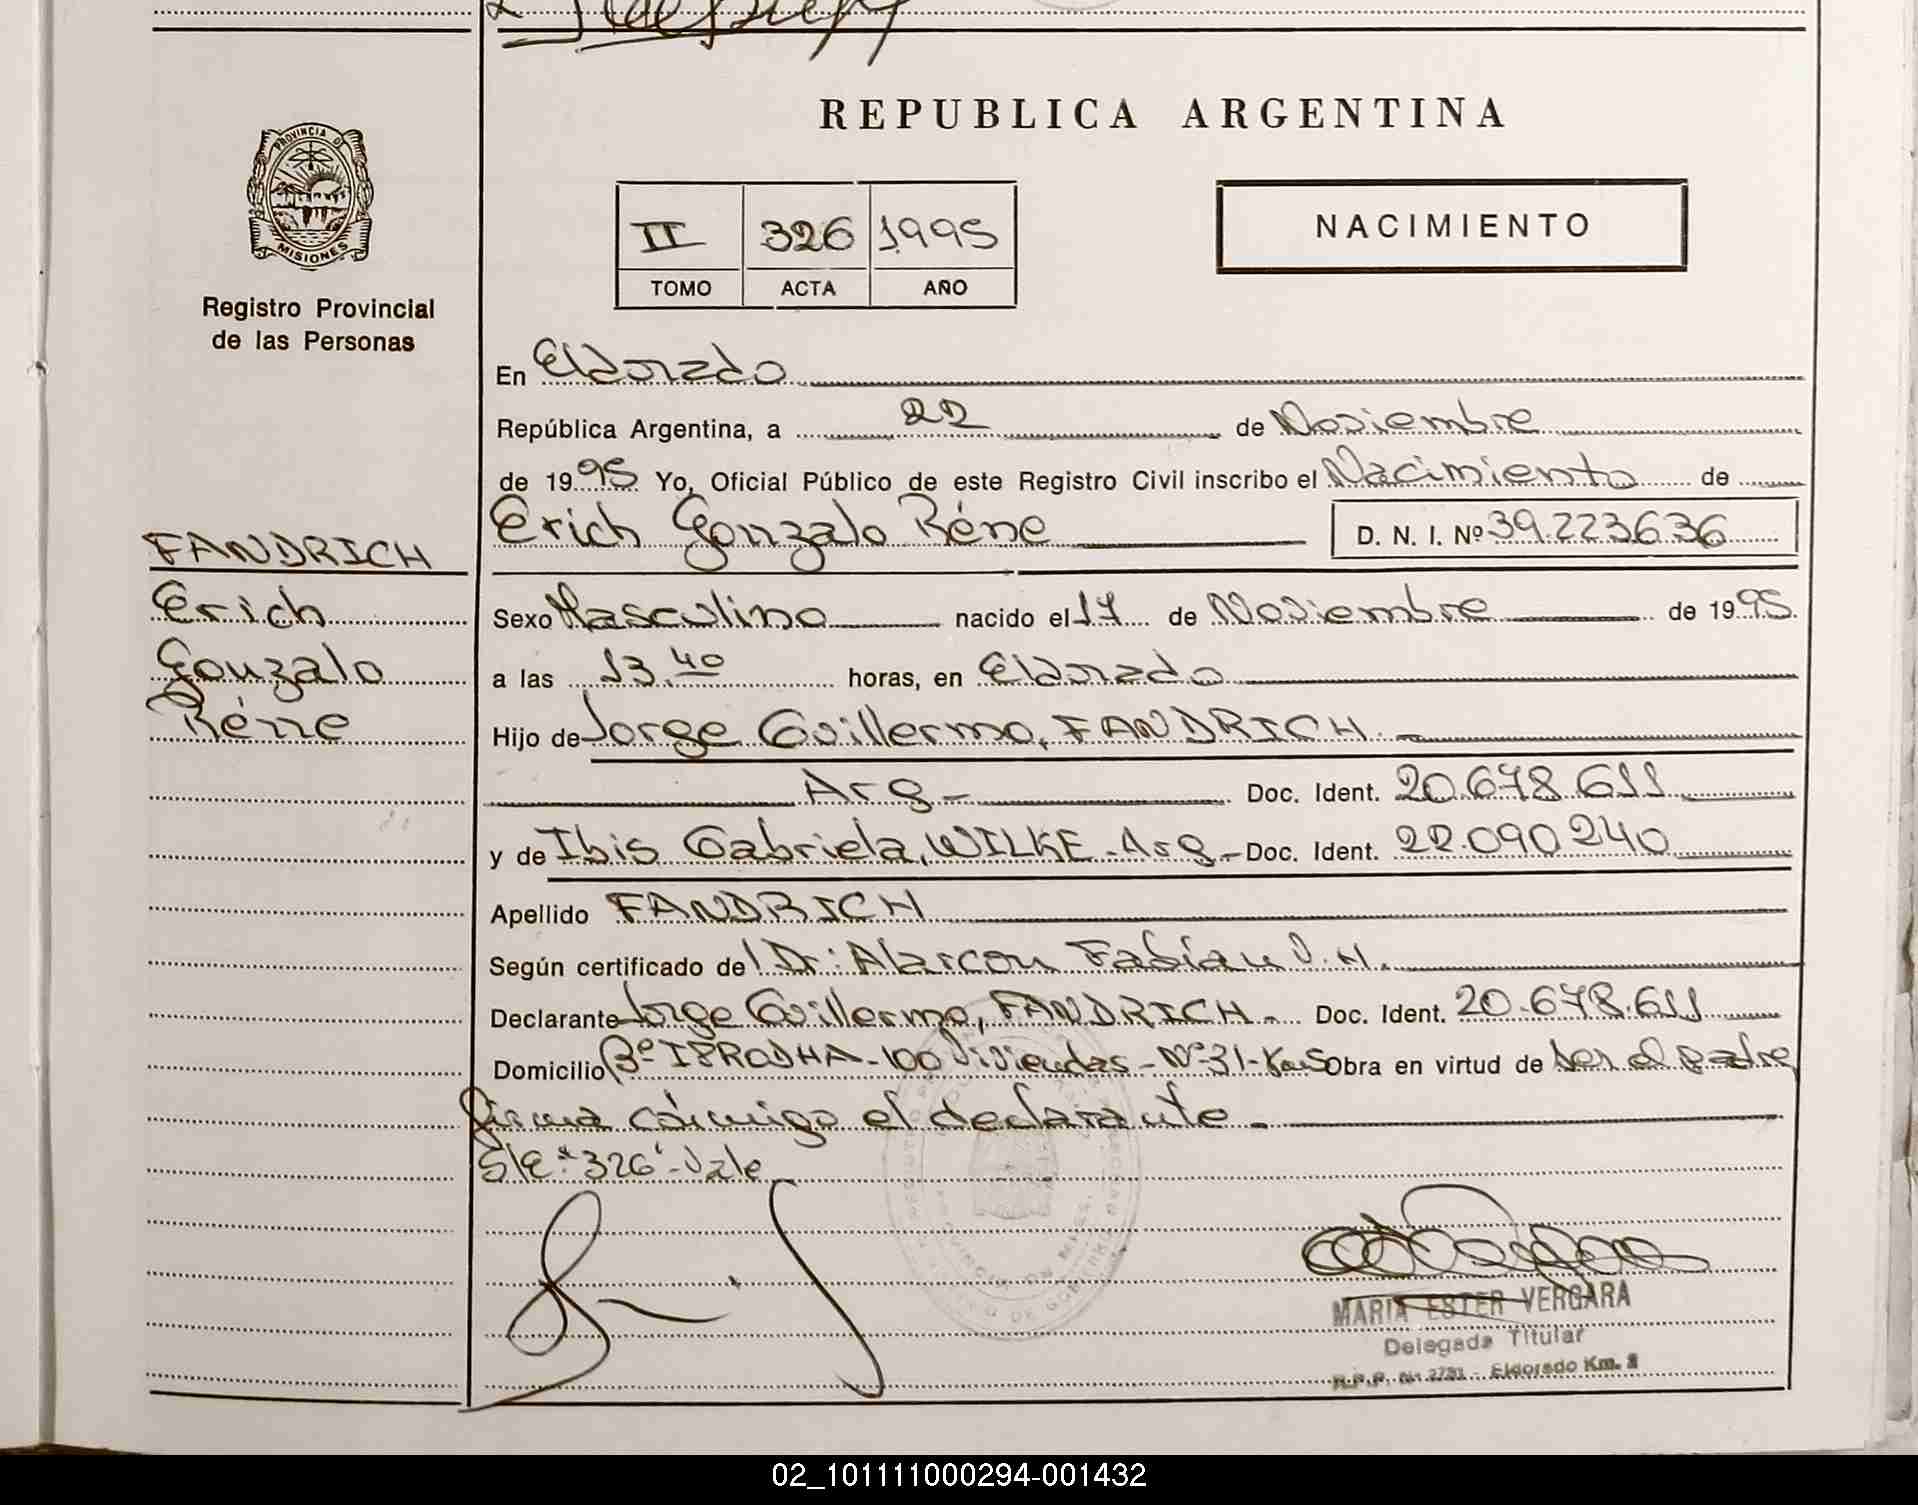 REPUBLICA ARGENTINA
PROVINCIA DE MISIONES
Registro Provincial
de las Personas
II 326 1995
TOMO ACTA AÑO
NACIMIENTO
En Eldorado
República Argentina, a 22 de Noviembre
de 1995 Yo, Oficial Público de este Registro Civil inscribo el Nacimiento de
Erich Gonzalo Réne D. N. I. Nº 39.223636
FANDRICH
Erich
Gonzalo
Réne
Sexo Masculino nacido el 17 de Noviembre de 1995.
a las 13.40 horas, en Eldorado
Hijo de Jorge Guillermo, FANDRICH.
Arg- Doc. Ident. 20.678.611
y de Ibis Gabriela, WILKE - Arg - Doc. Ident. 22.090.240
Apellido FANDRICH
Según certificado del Dr: Alarcon Fabián J. H.
Declarante Jorge Guillermo, FANDRICH. Doc. Ident. 20.678.611
Domicilio Bº IPRODHA - 100 Viviendas - Nº 31 - Km5 Obra en virtud de ser el padre
firma cónmigo el declarante.-
S/E: "326" - Vale
MARIA ESTER VERGARA
Delegada Titular
R.P.P. Nº 2731 - Eldorado Km. 2
02_101111000294-001432